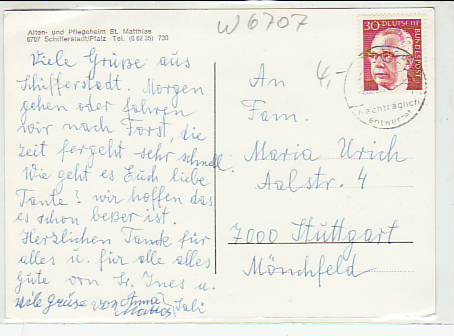 W 6707
Alten- und Pflegeheim St. Matthias
6707 Schifferstadt/Pfalz Tel: (0 62 35) 730
30 DEUTSCHE BUNDESPOST
4,-
Nachträglich
entwertet
Viele Grüsse aus
Schifferstadt. Morgen
gehen oder fahren
wir nach Forst. die
Zeit fergeht sehr schnell.
Wie geht es Euch liebe
Tante? wir hoffen das
es schon beßer ist.
Herzlichen Dank für
alles u. für alle alles
Gute von Sr. Ines u.
viele Grüse von Anna
An
Fam.
Maria Urich
Aalstr. 4
7000 Stuttgart
Mönchfeld